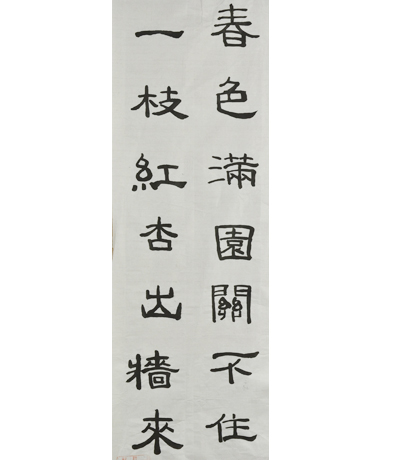 春色滿園關不住
一枝紅杏出牆來